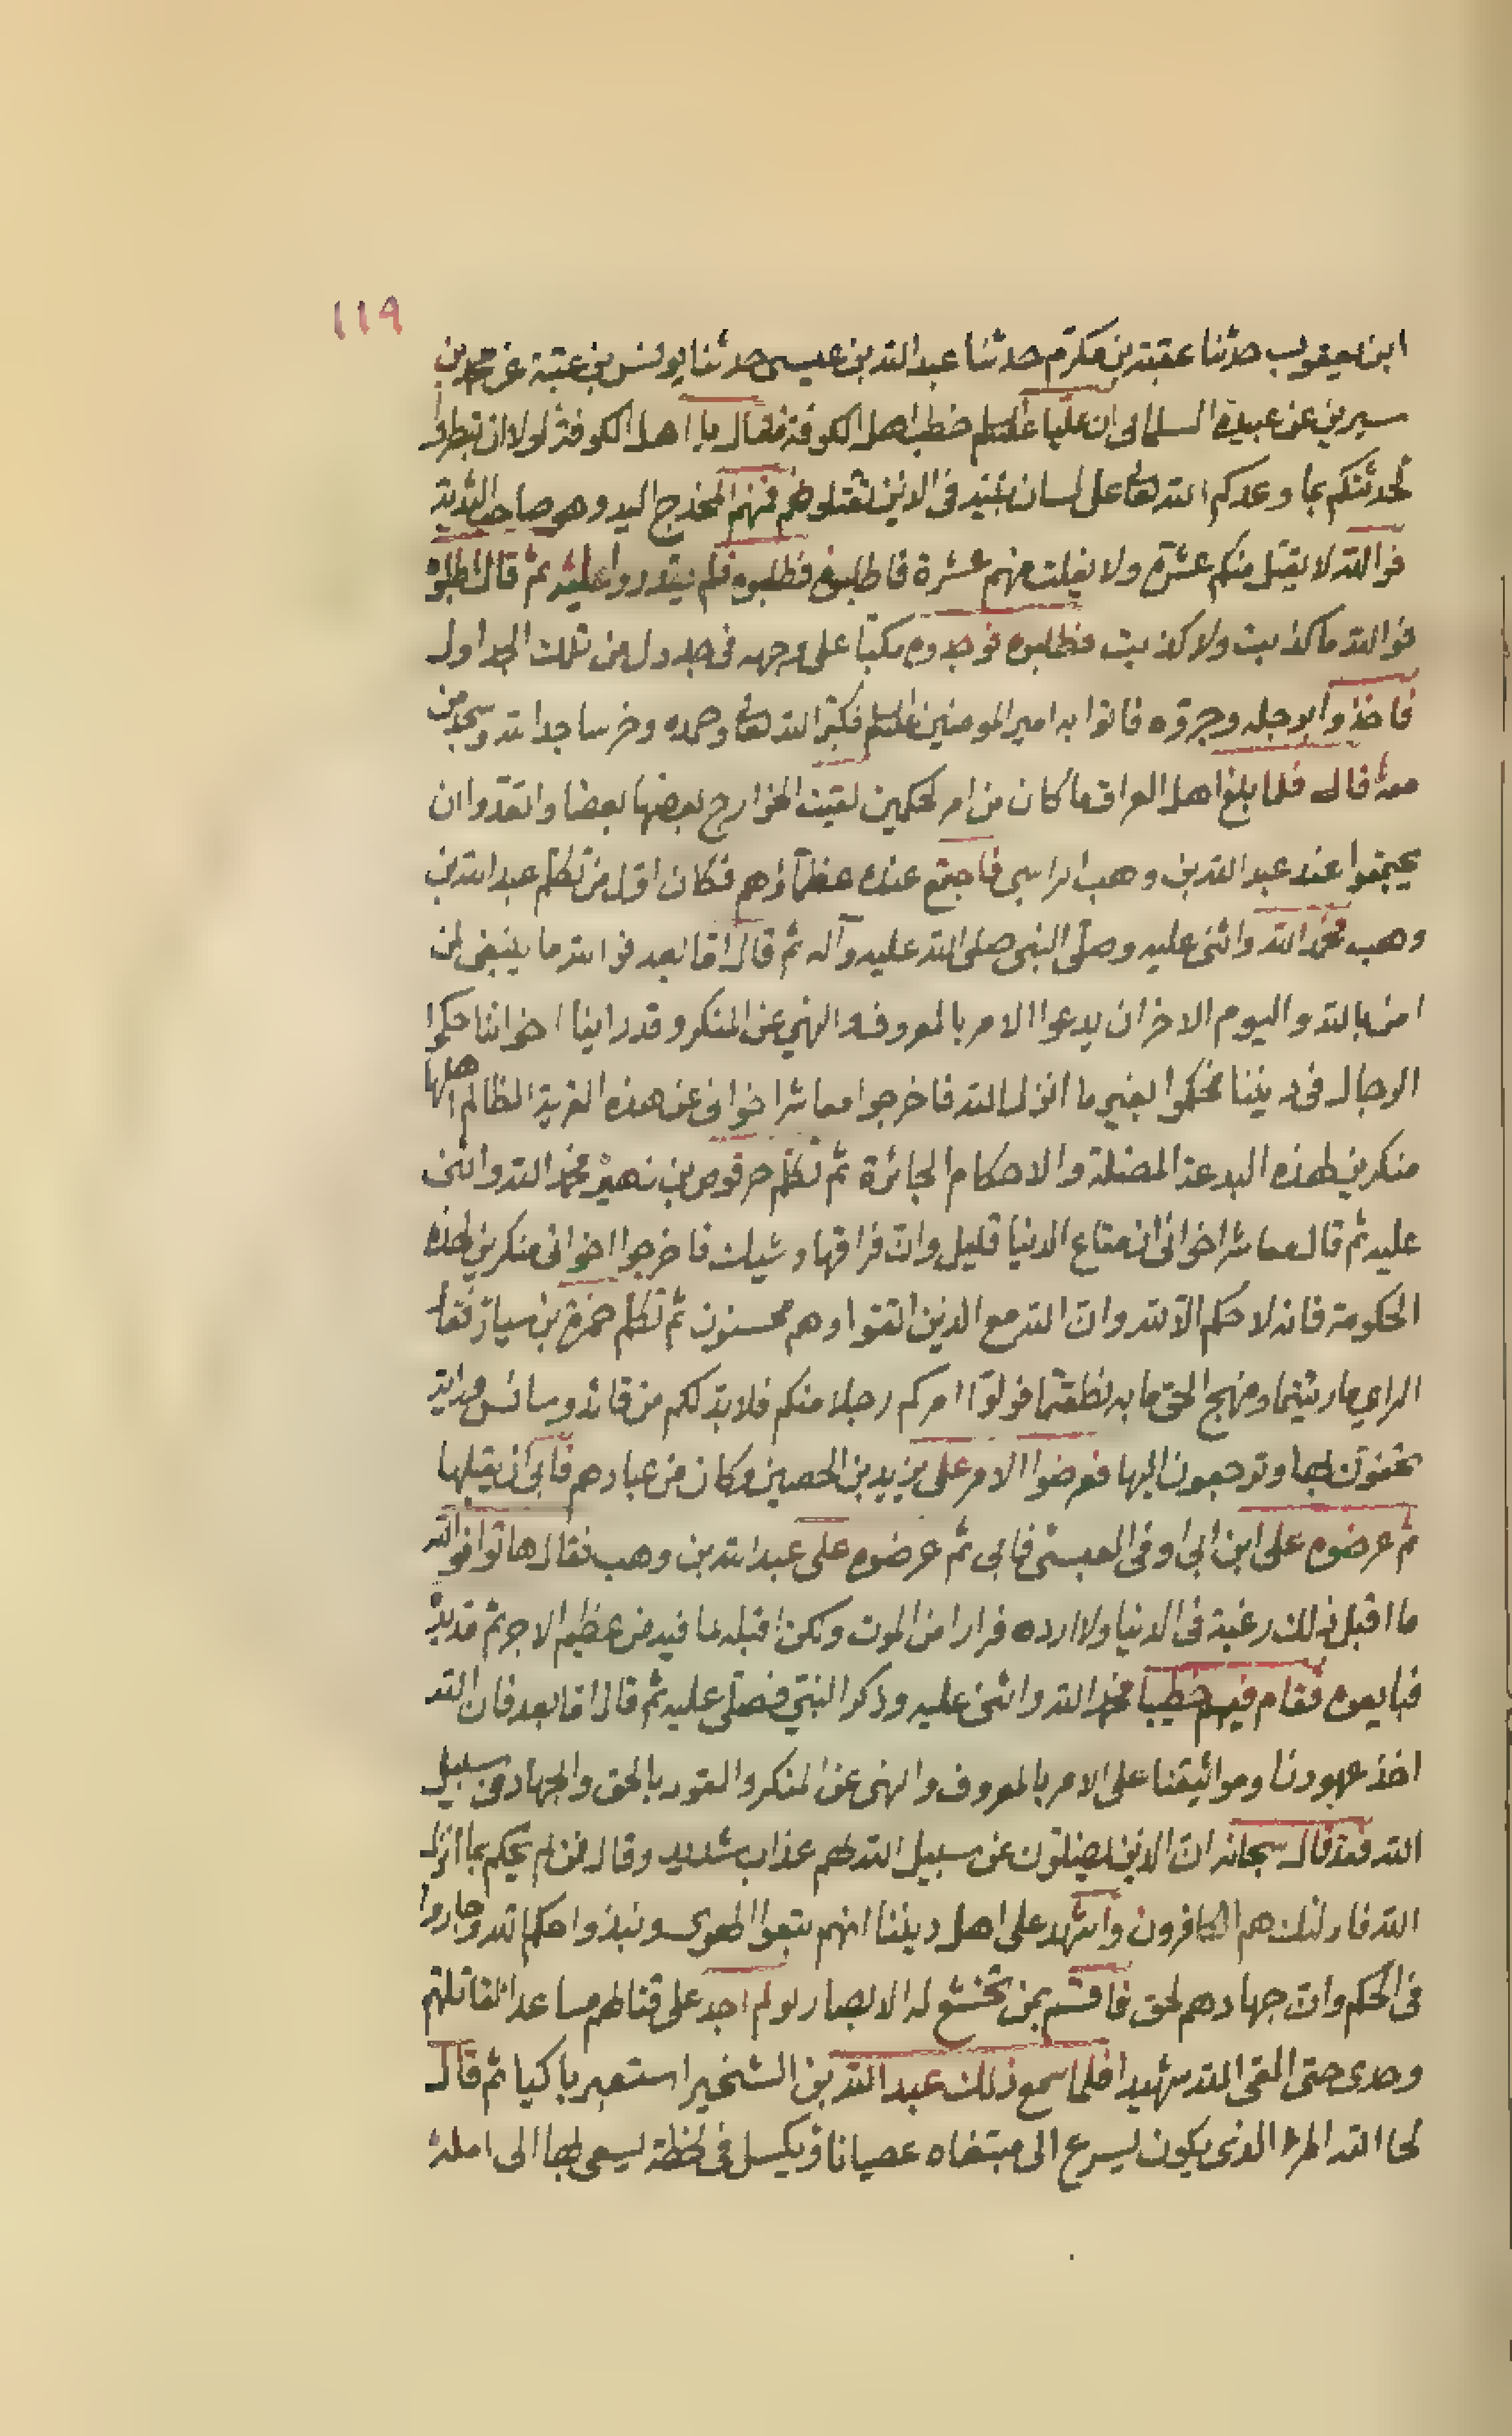 ١١٩
ابن يعقوب حدثنا عقبة بن مكرم حدثنا عبد الله بن عيسى حدثنا يونس بن عتبة عن محمد بن
سيرين عن عبيدة السلماني ان عليا عليه السلم خطب اهل الكوفة فقال يا اهل الكوفة لولا ان تبطروا
لحدثتكم بما وعدكم الله تعالى على لسان نبيه في الذين تقتلوهم فمنهم المخدج اليد وهو صاحب الثدية
فوالله لا يقتل منكم عشرة ولا يفلت منهم عشرة فاطلبوه فطلبوه فلم يقدروا عليه ثم قال اطلبوه
فوالله ما كذبت ولا كذبت فطلبوه فوجدوه مكبا على وجهه في جدول من تلك الجداول
فاخذوا برجله وجروه فاتوا به امير المومنين عليه السلم فكبر الله تعالى وحمده وخر ساجدا لله وسجد من
معه قال فلما بلغ اهل العراق ما كان من امر لحكمين لقيت الخوارج بعضها بعضا واتعدوا ان
يجتمعوا عند عبد الله بن وهب الراسبي فاجتمع عنده عظماؤهم فكان اول من تكلم عبد الله بن
وهب فحمد الله واثنى عليه وصلى النبي صلى الله عليه وآله ثم قال اما بعد فوالله ما ينبغي لمن
امن بالله واليوم الاخر ان يدعوا الامر بالمعروف والنهي عن المنكر وقد راينا اخواننا حكموا
الرجال في ديننا فحكموا بغير ما انزل الله فاخرجوا معاشر اخواني عن هذه القرية الظالم اهلها
منكرين لهذه البدعة المضلة والاحكام الجائرة ثم تكلم حرقوص بن زهير فحمد الله واثنى
عليه ثم قال معاشر اخواني ان متاع الدنيا قليل وان فراقها وشيك فاخرجوا اخواني منكرين لهذه
الحكومة فانه لا حكم الا لله وان الله مع الذين اتقوا وهم محسنون ثم تكلم حمزة بن سيار فقال
الراي ما رئيتما ومنهج الحق ما به نطقتما فولوا امركم رجلا منكم فلا بد لكم من قائد وسائس وراية
تحفون بها وترجعون اليها فعرضوا الامر على يزيد بن الحصين وكان من عبادهم فابى ان يقبلها
ثم عرضوه على ابن ابي اوفى العبسي فابى ثم عرضوه على عبد الله بن وهب فقال هاتوا فوالله
ما اقبل ذلك رغبة في الدنيا ولا ارده فرارا من الموت ولكن اقبله لما فيه من عظيم الاجر ثم مد يده
فبايعوه فقام فيهم خطيبا فحمد الله واثنى عليه وذكر النبي فصلى عليه ثم قال اما بعد فان الله
اخذ عهودنا ومواثيقنا على الامر بالمعروف والنهي عن المنكر والقول بالحق والجهاد في سبيل
الله فقد قال سبحانه ان الذين يضلون عن سبيل الله لهم عذاب شديد وقال فمن لم يحكم بما انزل
الله فاولئك هم الكافرون واشهد على اهل ديننا انهم تتبعوا الهوى ونبذوا حكم الله وجاروا
في الحكم وان جهادهم لحق فاقسم بمن تخشع له الابصار لو لم اجد على قتالهم مساعدا لقاتلتهم
وحدي حتى القى الله شهيدا فلما سمع ذلك عبد الله بن الشخير استعبر باكيا ثم قال
لحا الله المرا الذي يكون يسرع الى مبتغاه عصيانا ويكسل في لحظة يسعى بها الى امله